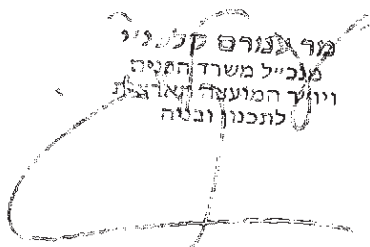 מר עמרם קלעג'י
מנכ"ל משרד הפנים
ויו"ר המועצה הארצית
לתכנון ובניה